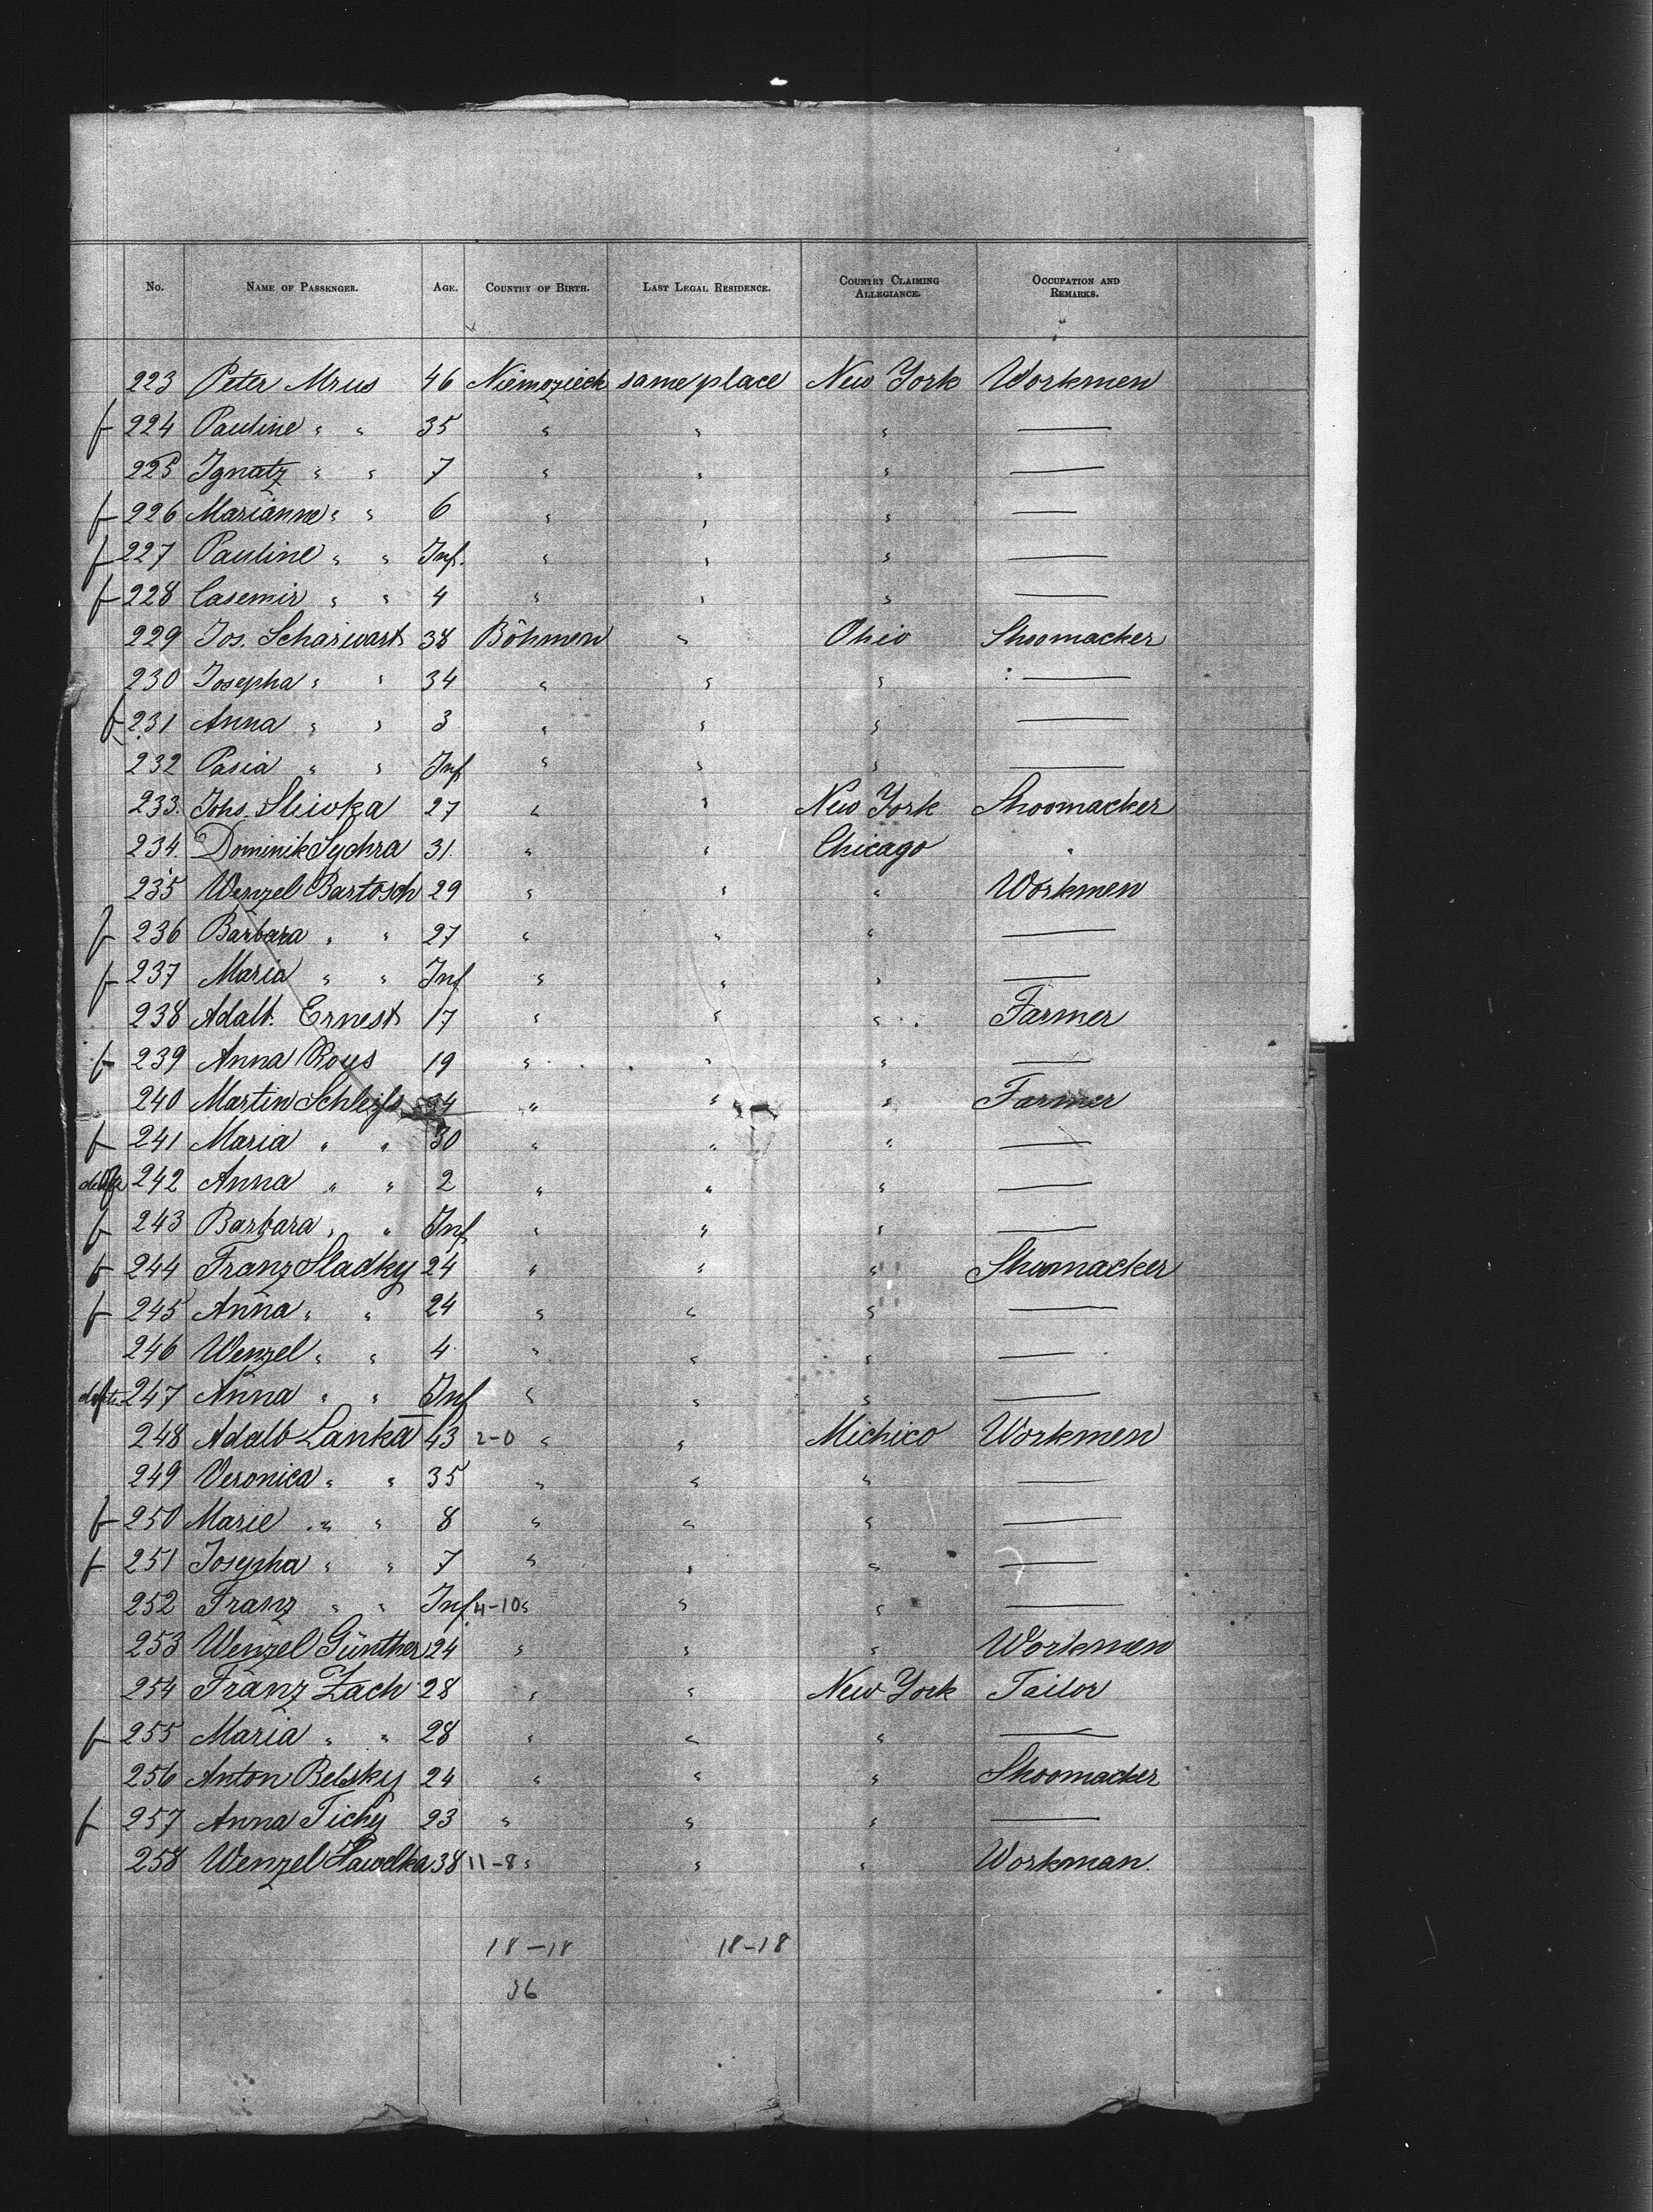 No. NAME OF PASSENGER. AGE. COUNTRY OF BIRTH. LAST LEGAL RESIDENCE. COUNTRY CLAIMING ALLEGIANCE. OCCUPATION AND REMARKS.
223 Peter Mrus 46 same place New York Workmen
f 224 Pauline " " 35 " " " —
225 Ignatz " " 7 " " " —
f 226 Marianne " " 6 " " " —
f 227 Pauline " " Inf. " " " —
f 228 Casemir " " 4 " " " —
229 Jos. Schariwart 38 Böhmen " Ohio Shoomacker
230 Josepha " " 34 " " " —
f 231 Anna " " 3 " " " —
232 Pasia " " Inf " " " —
233. Johs. Slivka 27 " " New York Shoomacker
234. Dominik Sychra 31. " " Chicago "
235 Wenzel Bartosch 29 " " " Workmen
f 236 Barbara " " 27 " " " —
f 237 Maria " " Inf " " " —
238 Adalb. Ernest 17 " " " Farmer
f 239 Anna Rous 19 " " " —
240 Martin Schleifs 34 " " " Farmer
f 241 Maria " " 30 " " " —
242 Anna " " 2 " " " —
f 243 Barbara " " Inf " " " —
f 244 Franz Sladky 24 " " " Shoomacker
f 245 Anna " " 24 " " " —
246 Wenzel " " 4 " " " —
247 Anna " " Inf " " " —
248 Adalb Lanka 43 2-0 " " Michico Workmen
249 Veronica " " 35 " " " —
f 250 Marie " " 8 " " " —
f 251 Josepha " " 7 " " " —
252 Franz " " Inf 4-10 " " " —
253 Wenzel Günther 24 " " " Workmen
254 Franz Zach 28 " " New York Tailor
f 255 Maria " " 28 " " " —
256 Anton Belsky 24 " " " Shoomacker
f 257 Anna Tichy 23 " " " —
258 Wenzel Hawelka 38 11-8 " " " Workman.
18-18 18-18
36